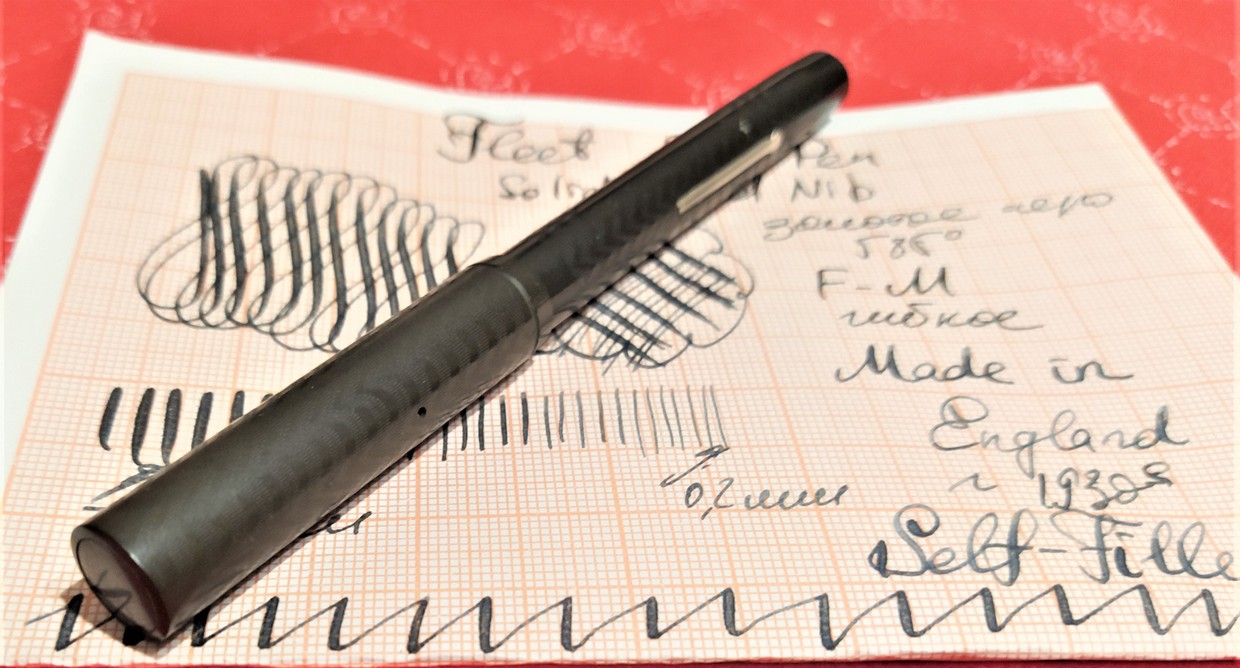 Fleet Pen
Solid Nib
золотое перо
585°
F-M
гибкое
Made in
England
~ 1930s
0,2 мм
Self-Fille